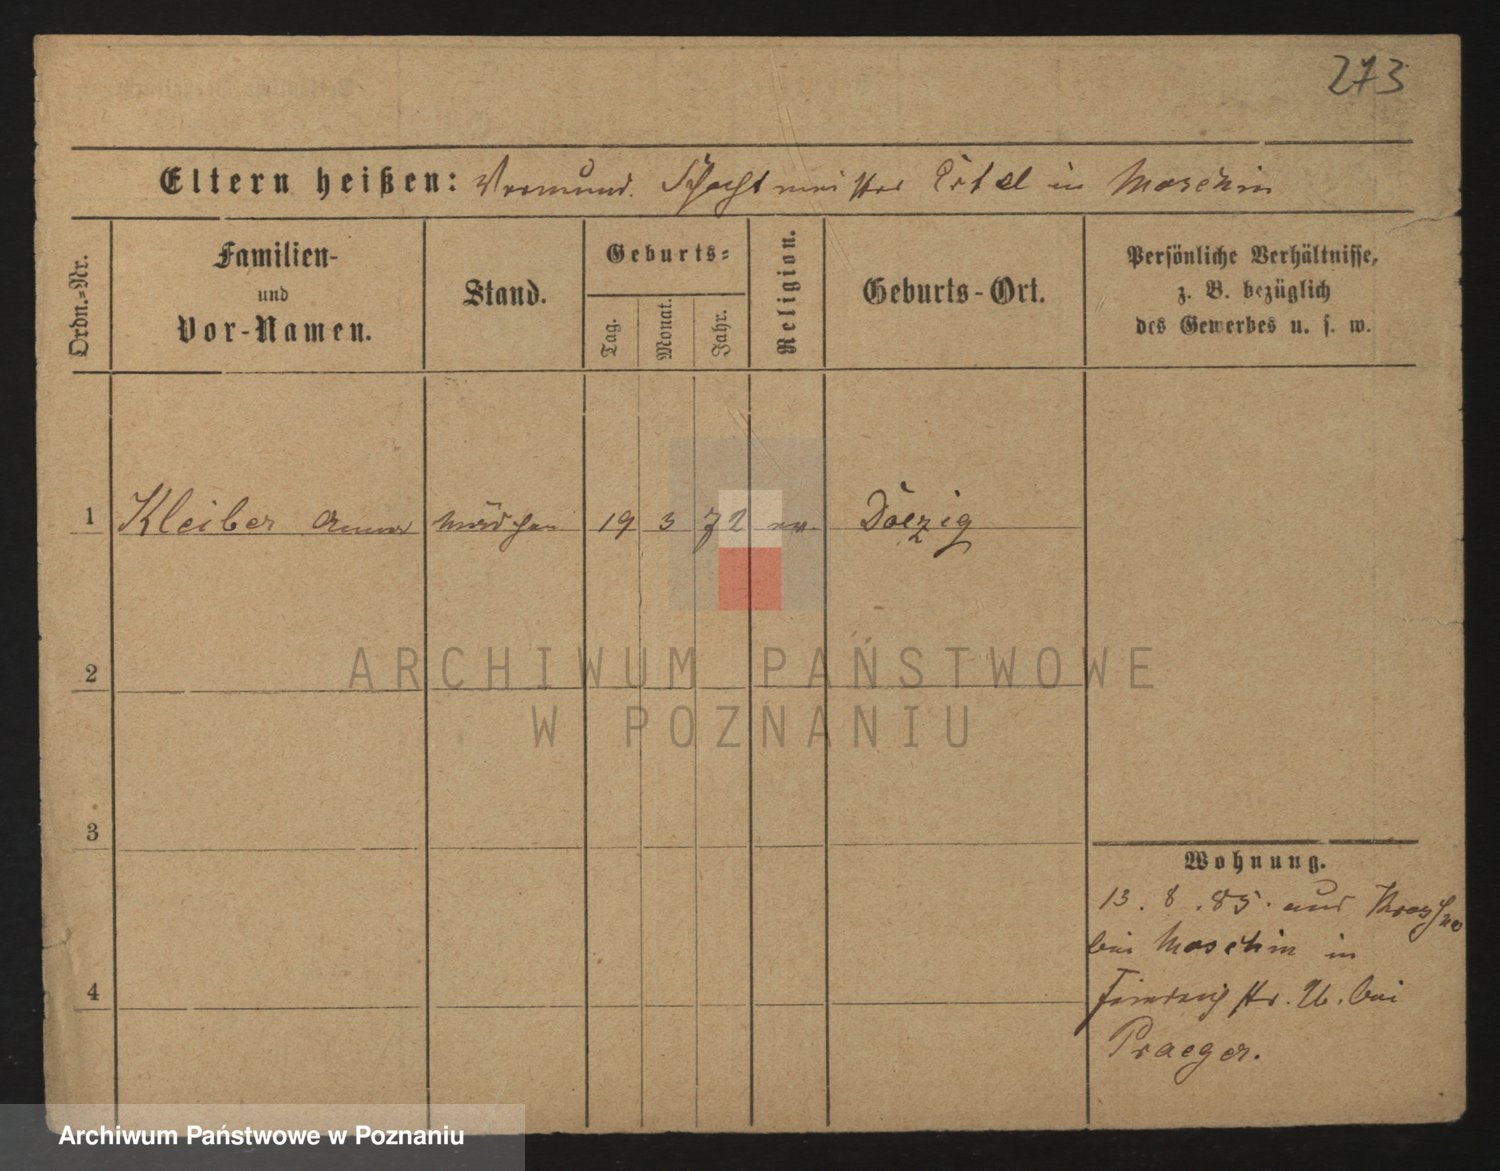 273
Eltern heißen: Vormund. Schachtmeister Ertel in Moschin
Ordn.=Nr.
Familien-
und
Vor-Namen.
Stand.
Geburts=
Tag.
Monat.
Jahr.
Religion.
Geburts-Ort.
Persönliche Verhältnisse,
z. B. bezüglich
des Gewerbes u. s. w.
1 Kleiber Anna Mädchen 19 3 72 ev. Dolzig
2
ARCHIWUM PAŃSTWOWE
W POZNANIU
3
4
Wohnung.
13. 8. 85. aus
bei Moschin in
str. bei
Praeger.
Archiwum Państwowe w Poznaniu